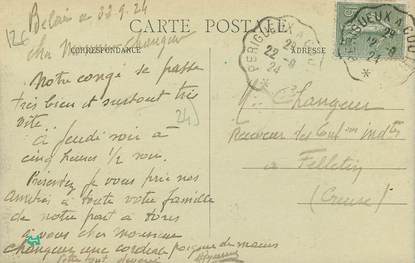 Belair 22.9.24
CARTE POSTALE
CORRESPONDANCE
ADRESSE
PERIGUEUX A
22-9
24
Cher Monsieur Changeur
Notre congé se passe
très bien et surtout très
vite.
à jeudi soir à
cinq heures 1/2 soir.
je vous prie nos
amitiés à toute votre famille
de notre part à tous
à vous cher Monsieur
Changeur une cordiale poignée de mains
votre tout dévoué
Mr Changeur
Receveur des Contons indtes
à Felletin
(Creuse)